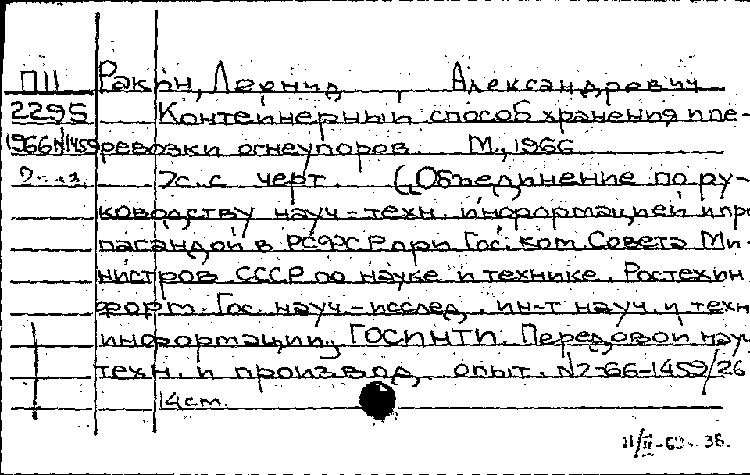 П11 Ракон, Леонид Александрович
2295 Контейнерный способ хранения и пе-
1966N1459 ревозки огнеупоров. М., 1966
7с. с черт. (Объединение по ру-
ководству науч-техн. информацией и про
пагандой в РСФСР при Гос. ком. Совета Ми-
нистров СССР по науке и технике. Ростехин
форм. Гос. науч-исслед. ин-т науч. и техн
информации, ГОСИНТИ. Передовой науч
техн. и производ. опыт. N2-66-1459/26
14cm.